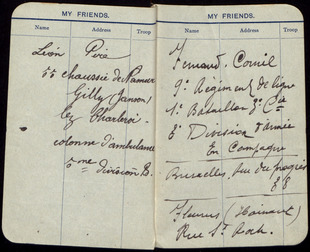 MY FRIENDS.
Name Address Troop
Léon
55 chaussée de Namur
Gilly
lez Charleroi
colonne d'ambulance
5me division B.
MY FRIENDS.
Name Address Troop
Fernand
9e Régiment de ligne
1r Bataillon 3e Cie
3e Division d'armée
En Campagne
Bruxelles, rue du Progrès
Fleurus (Hainaut)
Rue St Roch.